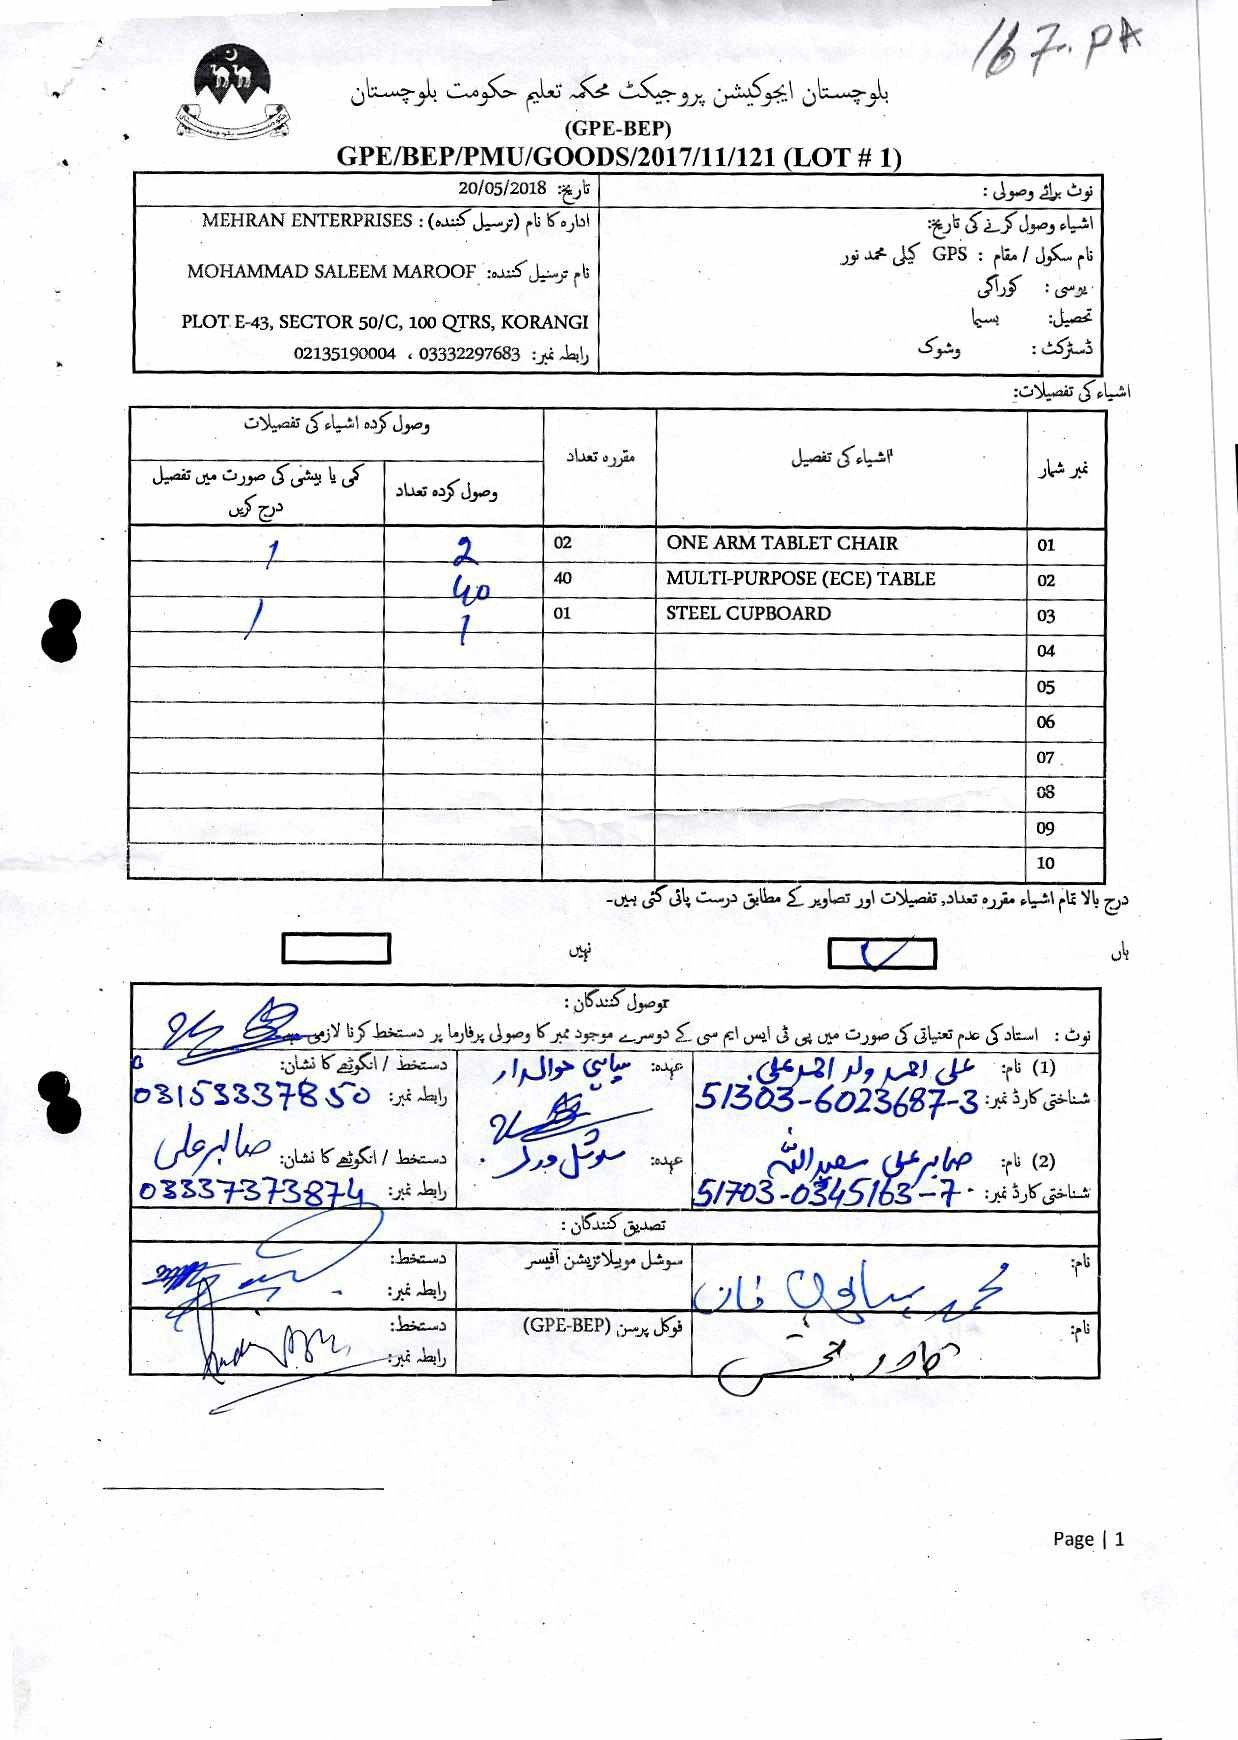 167.PA
بلوچستان ایجوکیشن پروجیکٹ محکمہ تعلیم حکومت بلوچستان
(GPE-BEP)
GPE/BEP/PMU/GOODS/2017/11/121 (LOT # 1)
نوٹ برائے وصولی :
تاریخ: 20/05/2018
اشیاء وصول کرنے کی تاریخ:
نام سکول / مقام : GPS کیلی محمد نور
یوسی : کوراکی
تحصیل: بسیما
ڈسٹرکٹ : وشوک
ادارہ کا نام (ترسیل کنندہ) : MEHRAN ENTERPRISES
نام ترسیل کنندہ: MOHAMMAD SALEEM MAROOF
PLOT E-43, SECTOR 50/C, 100 QTRS, KORANGI
رابطہ نمبر: 03332297683 ، 02135190004
اشیاء کی تفصیلات:
نمبر شمار اشیاء کی تفصیل مقررہ تعداد وصول کردہ اشیاء کی تفصیلات
وصول کردہ تعداد کمی یا بیشی کی صورت میں تفصیل درج کریں
01 ONE ARM TABLET CHAIR 02 2 1
02 MULTI-PURPOSE (ECE) TABLE 40 40
03 STEEL CUPBOARD 01 1 1
04
05
06
07
08
09
10
درج بالا تمام اشیاء مقررہ تعداد, تفصیلات اور تصاویر کے مطابق درست پائی گئی ہیں۔
ہاں نہیں
وصول کنندگان :
نوٹ : استاد کی عدم تعنیاتی کی صورت میں پی ٹی ایس ایم سی کے دوسرے موجود ممبر کا وصولی پرفارما پر دستخط کرنا لازمی ہے
(1) نام: علی احمد ولد احمد علی عہدہ: سپاہی حوالدار دستخط / انگوٹھے کا نشان:
شناختی کارڈ نمبر: 51303-6023687-3 رابطہ نمبر: 03153337850
(2) نام: صابر علی سعید اللہ عہدہ: سوشل ورکر دستخط / انگوٹھے کا نشان: صابر علی
شناختی کارڈ نمبر: 51703-0345163-7 رابطہ نمبر: 03337373874
تصدیق کنندگان :
نام: محمد خان سوشل موبیلائزیشن آفیسر دستخط:
رابطہ نمبر:
نام: قادر بخش فوکل پرسن (GPE-BEP) دستخط:
رابطہ نمبر:
Page | 1